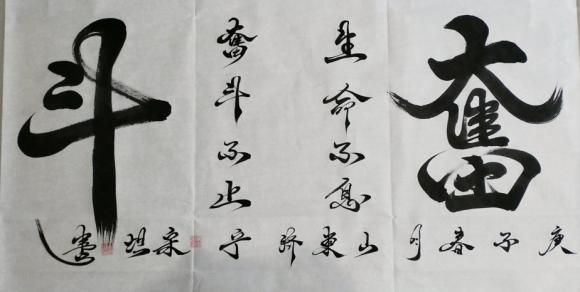 奮
生命不息
奮斗不止
斗
庚子春月山東济宁宋坦書